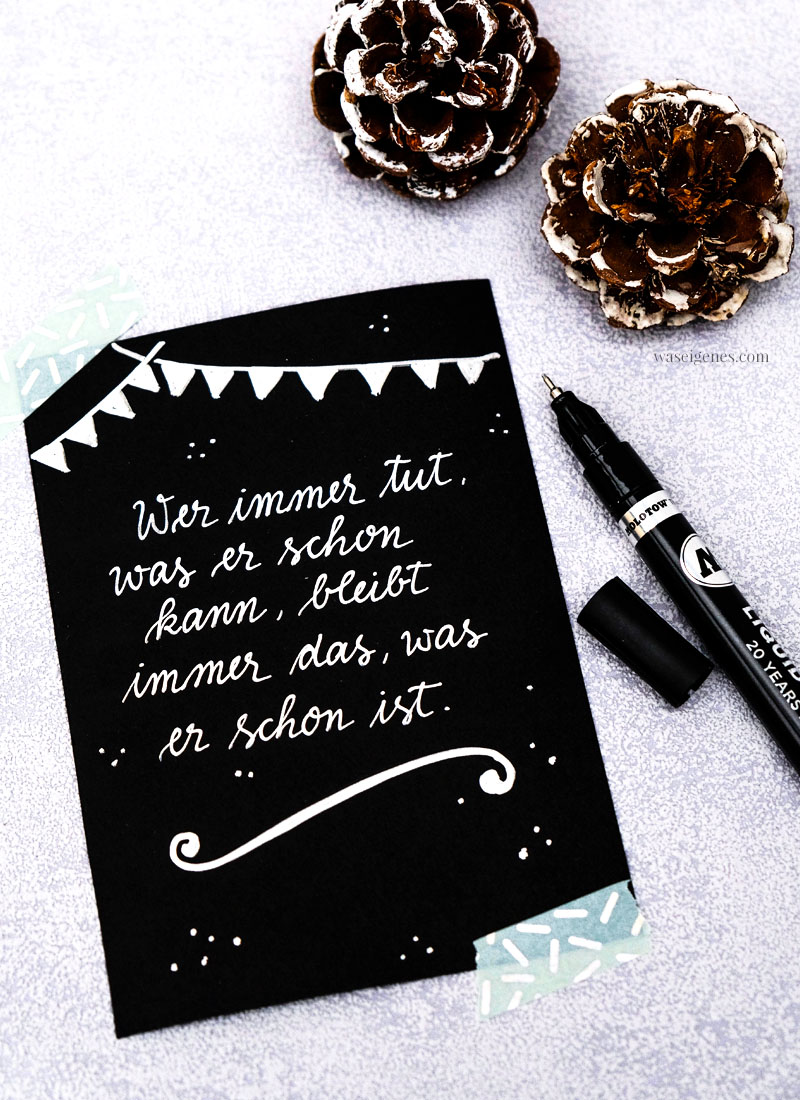 waseigenes.com
Wer immer tut,
was er schon
kann, bleibt
immer das, was
er schon ist.
MOLOTOW
LIQUID
20 YEARS